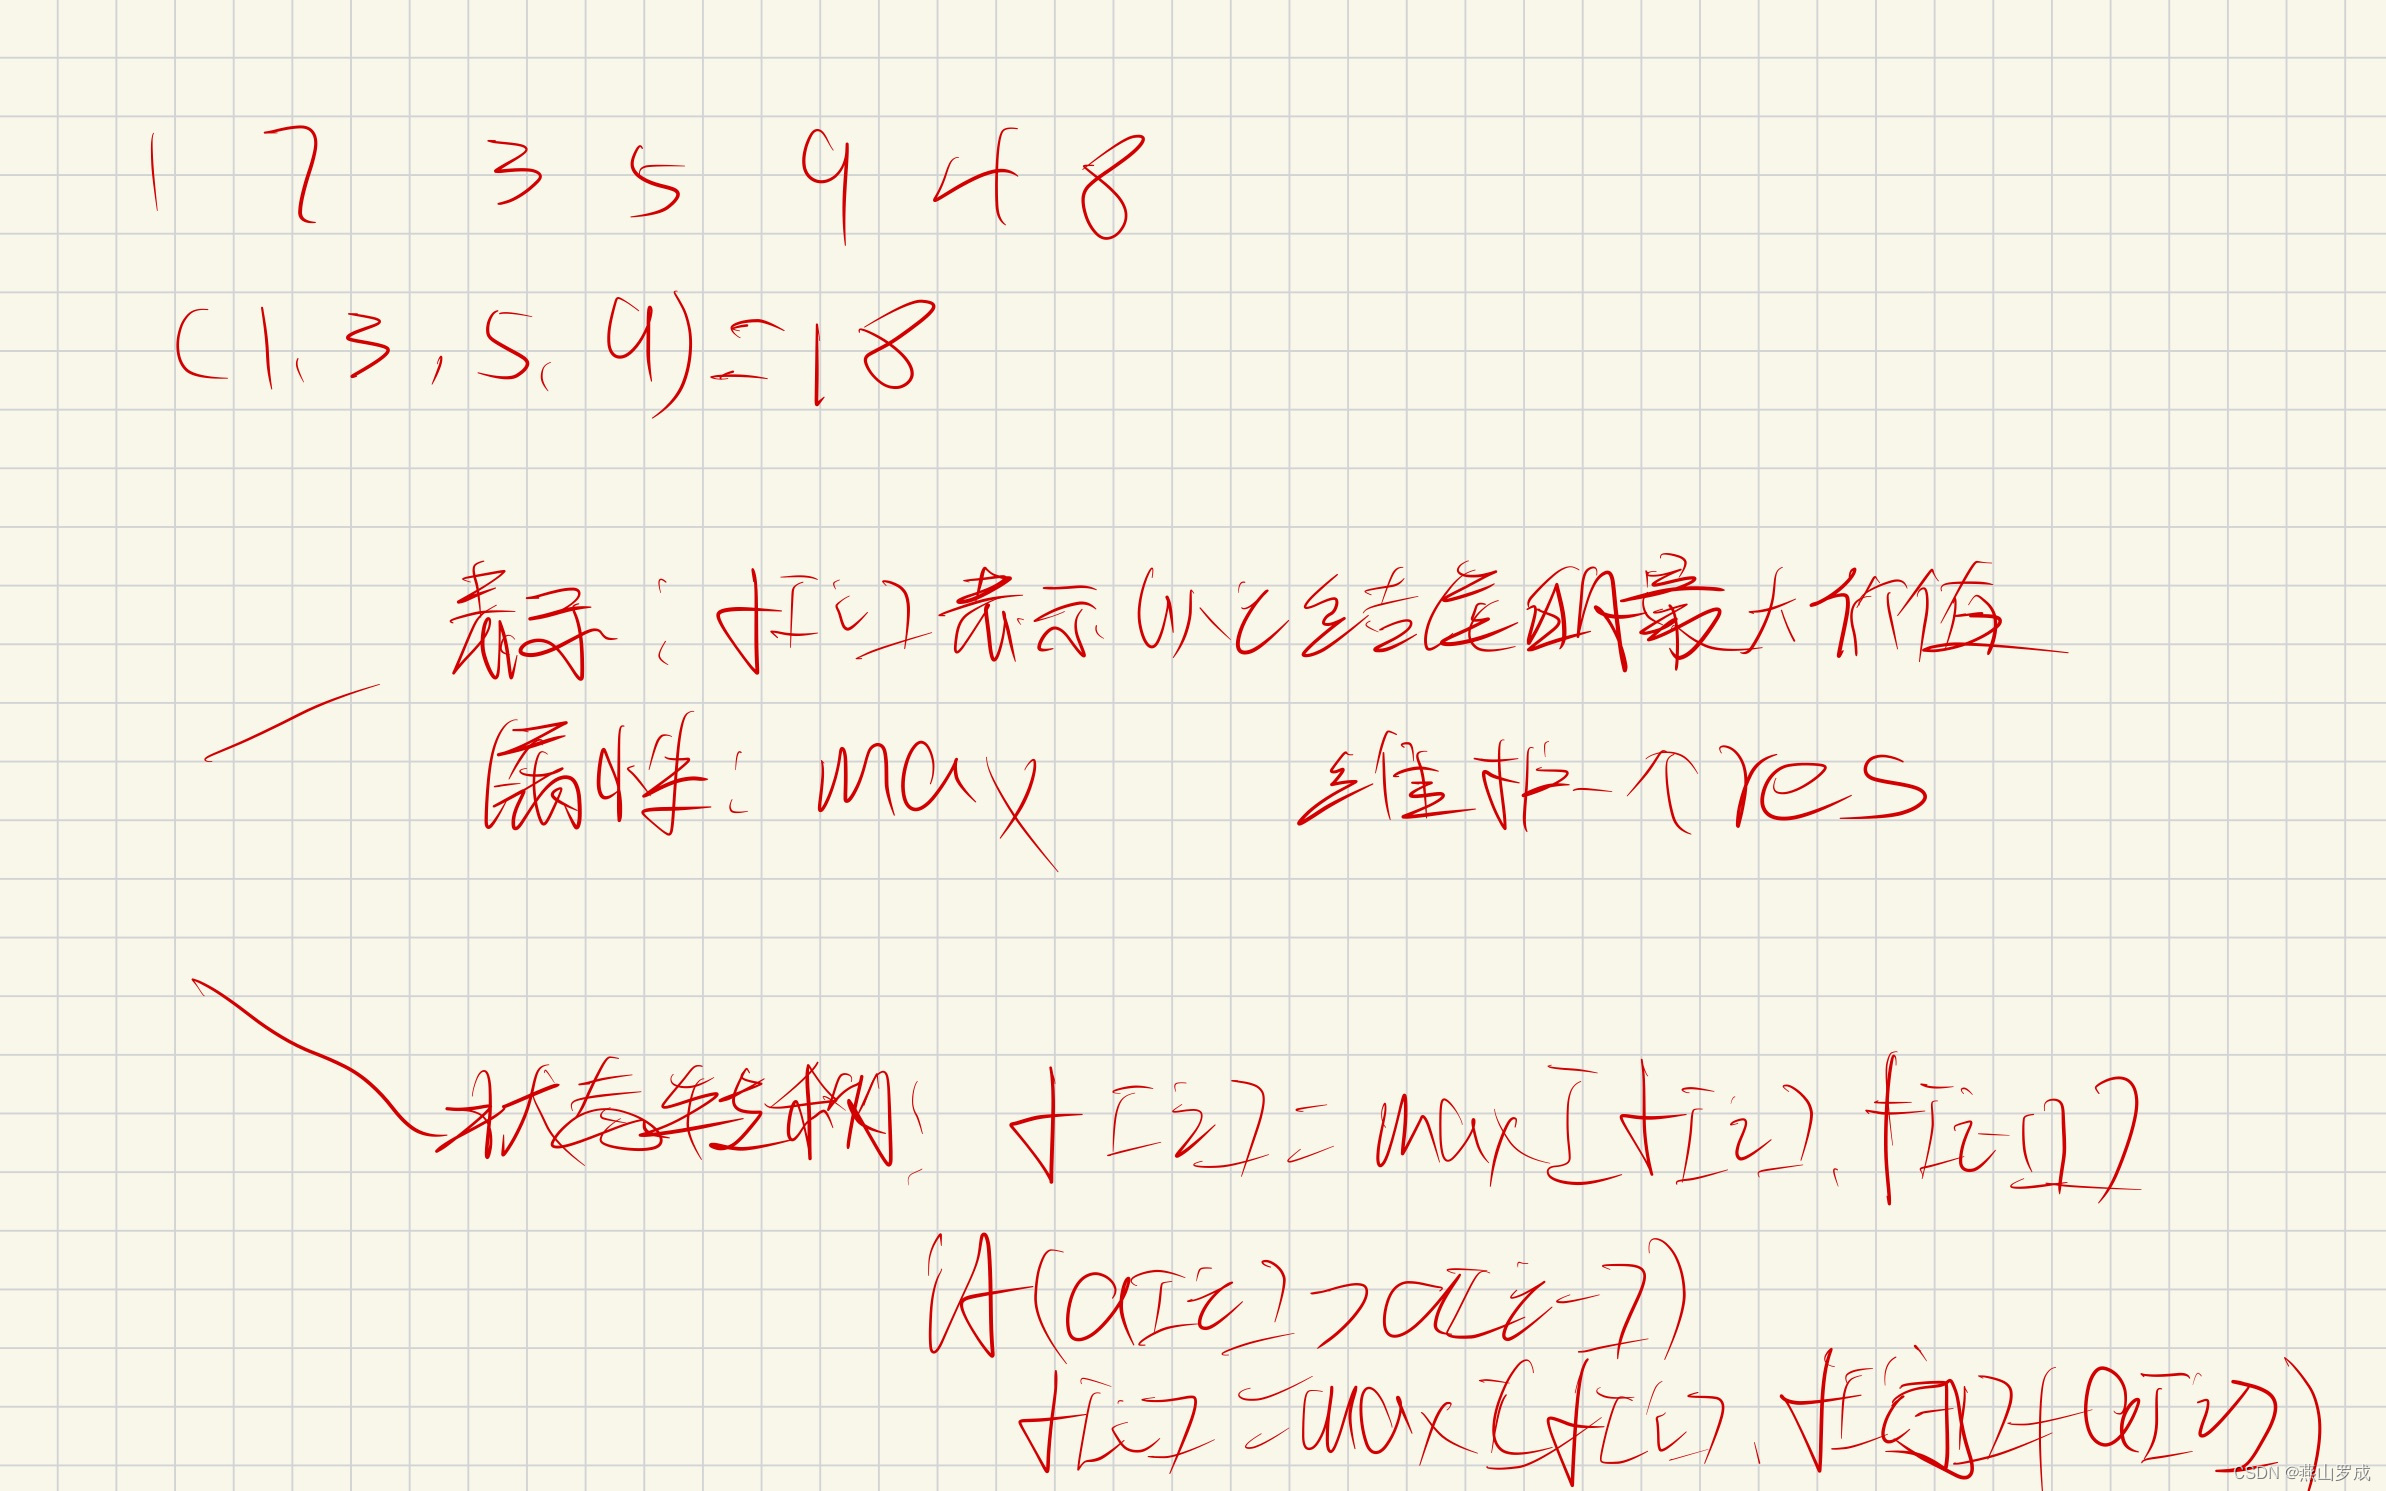 1 7 3 5 9 4 8
(1, 3, 5, 9) = 18
表示: f[i] 表示以i结尾的最大价值
属性: max 维护一个res
状态转移: f[i] = max[f[i], f[i-1]]
if(a[i] > a[i-1])
f[i] = max(f[i], f[]+a[i])
CSDN @燕山罗成